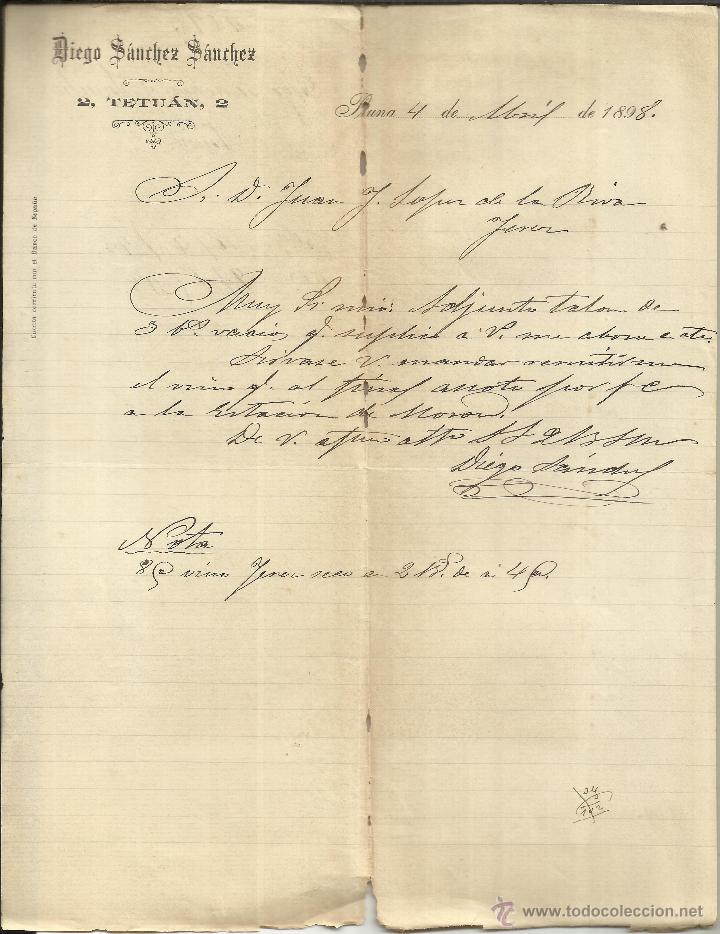 Diego Sánchez Sánchez
2, TETUÁN, 2
Pruna 4 de Abril de 1898.
Cuenta corriente con el Banco de España
Sr. D. Juan J. Lopez de la Riva
Jerez
Muy Sr. mio: Adjunto talon de
3 Bs. vacios q. suplico a V. me abone e cta.
Sirvase V. mandar remitirme
el vino q. al final anoto por f c
a la Estación de Moron.
De V. afmo atto S S Q B S M
Diego Sánchez
Nota
8 @ vino Jerez seco en 2 Bs. de a 4 @.
www.todocoleccion.net